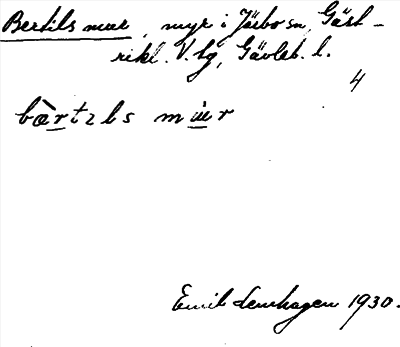 Bertils mur, myr i Järbo sn, Gäst-
rikl. V. tg, Gävleb. l.
4
bàrtɩls mur
Emil Lenhagen 1930.